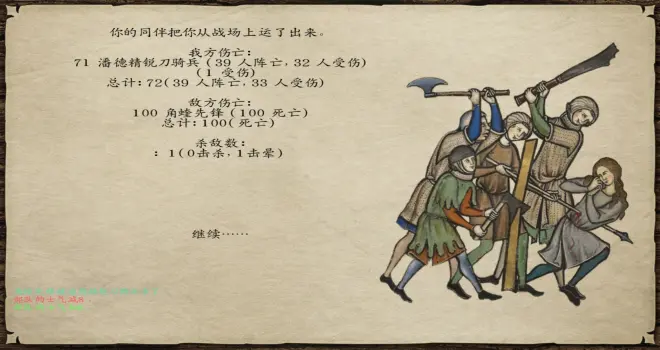 你的同伴把你从战场上运了出来。
我方伤亡:
71 潘德精锐刀骑兵 (39 人阵亡, 32 人受伤)
(1 受伤)
总计: 72(39 人阵亡, 33 人受伤)
敌方伤亡:
100 角蝰先锋 (100 死亡)
总计: 100(死亡)
杀敌数:
: 1(0击杀, 1击晕)
继续……
部队的士气减